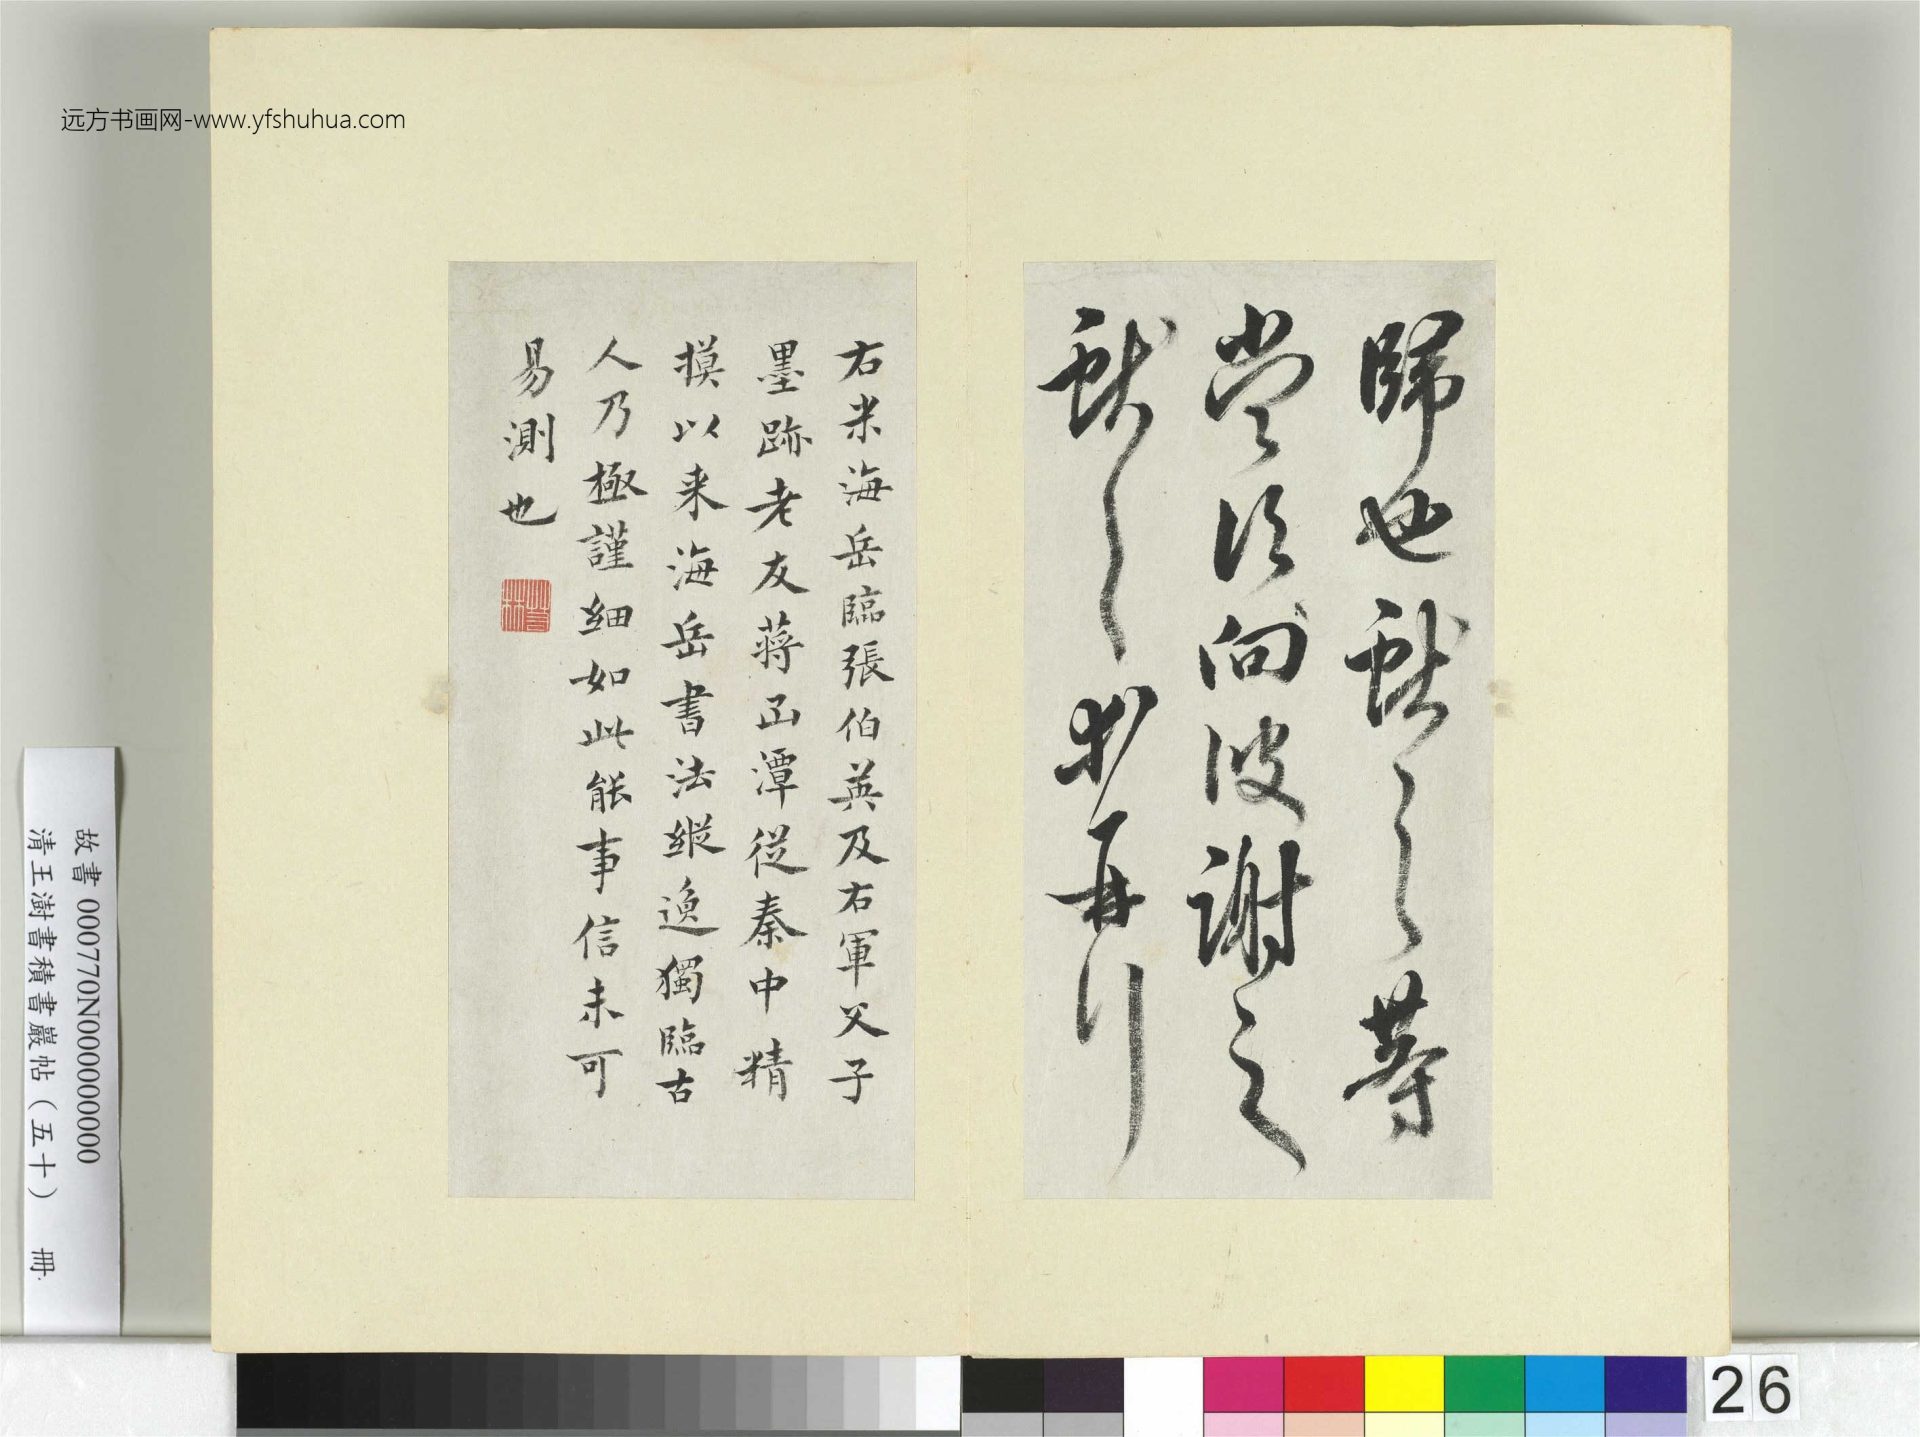 远方书画网-www.yfshuhua.com
歸也獻之等
當須向彼謝之
獻之
再行
右米海岳臨張伯英及右軍父子
墨跡老友蔣函潭從秦中精
摸以来海岳書法縱逸獨臨古
人乃極謹細如此能事信未可
易測也
故書 000770N000000000
清王澍書積書巖帖(五十) 冊
26